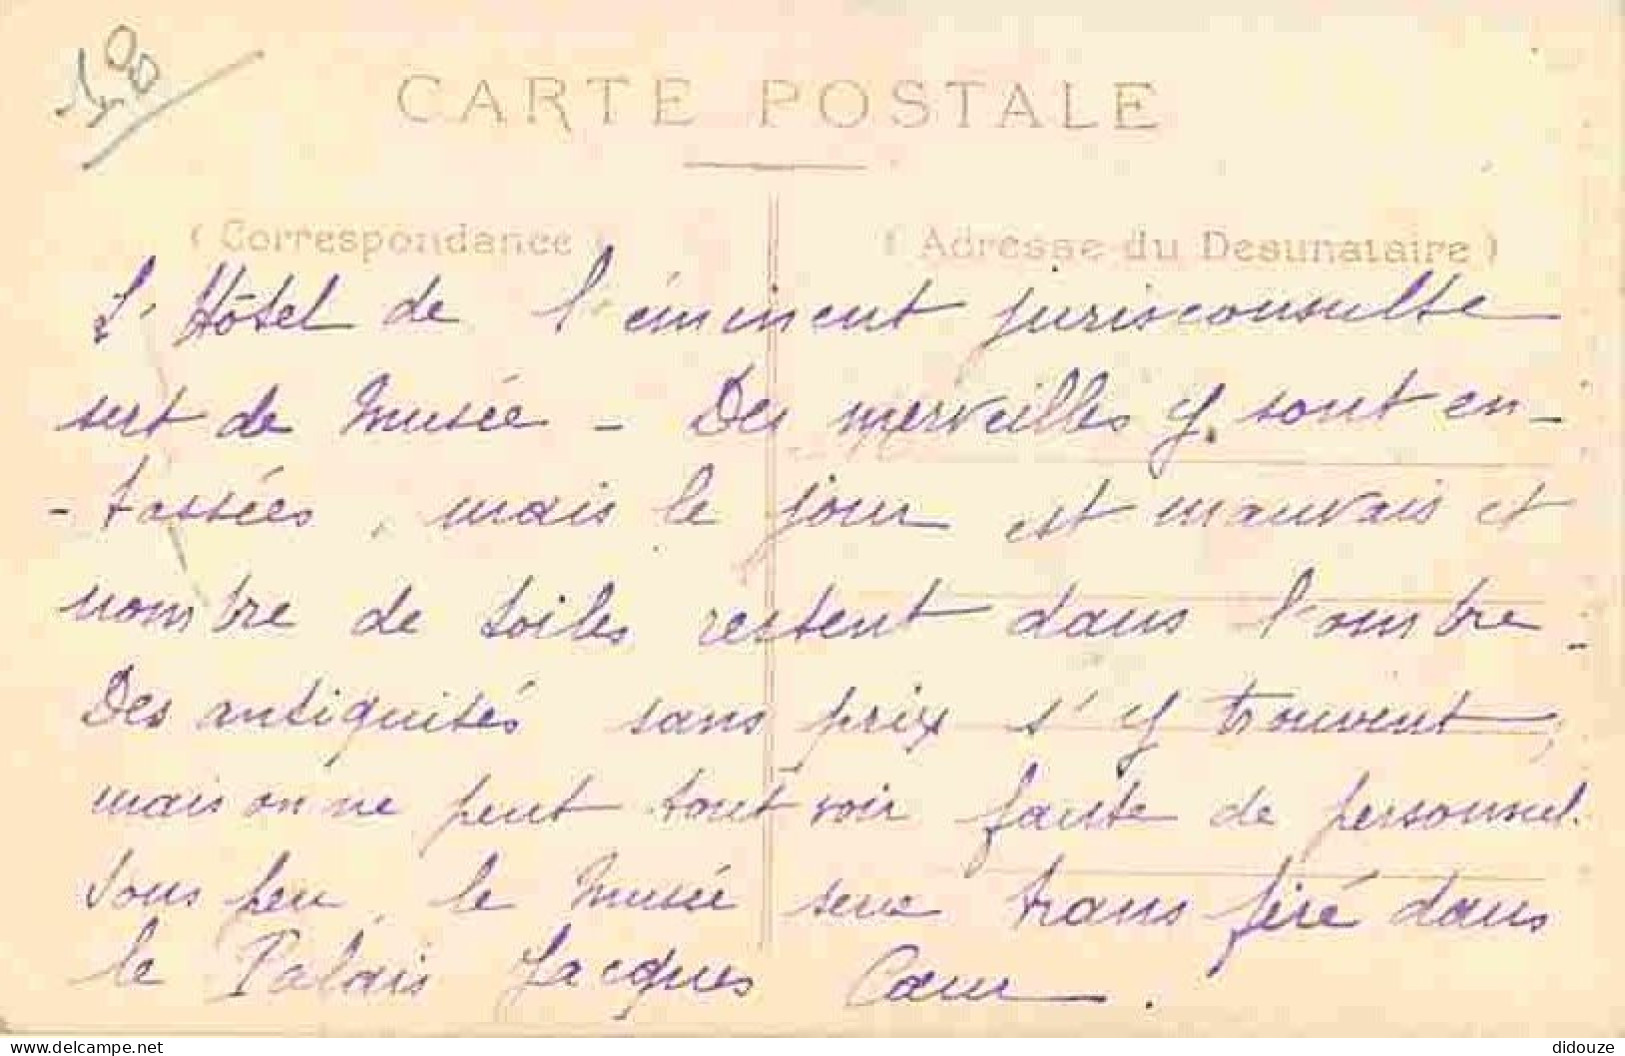 CARTE POSTALE
(Correspondance)
(Adresse du Destinataire)
L'Hôtel de l'éminent jurisconsulte
sert de Musée - Des merveilles y sont en-
-tassées, mais le jour est mauvais et
nombre de toiles restent dans l'ombre -
Des antiquités sans prix s'y trouvent,
mais on ne peut tout voir faute de personnel.
Sous peu, le Musée sera transféré dans
le Palais Jacques Cœur.
delcampe.net
didouze